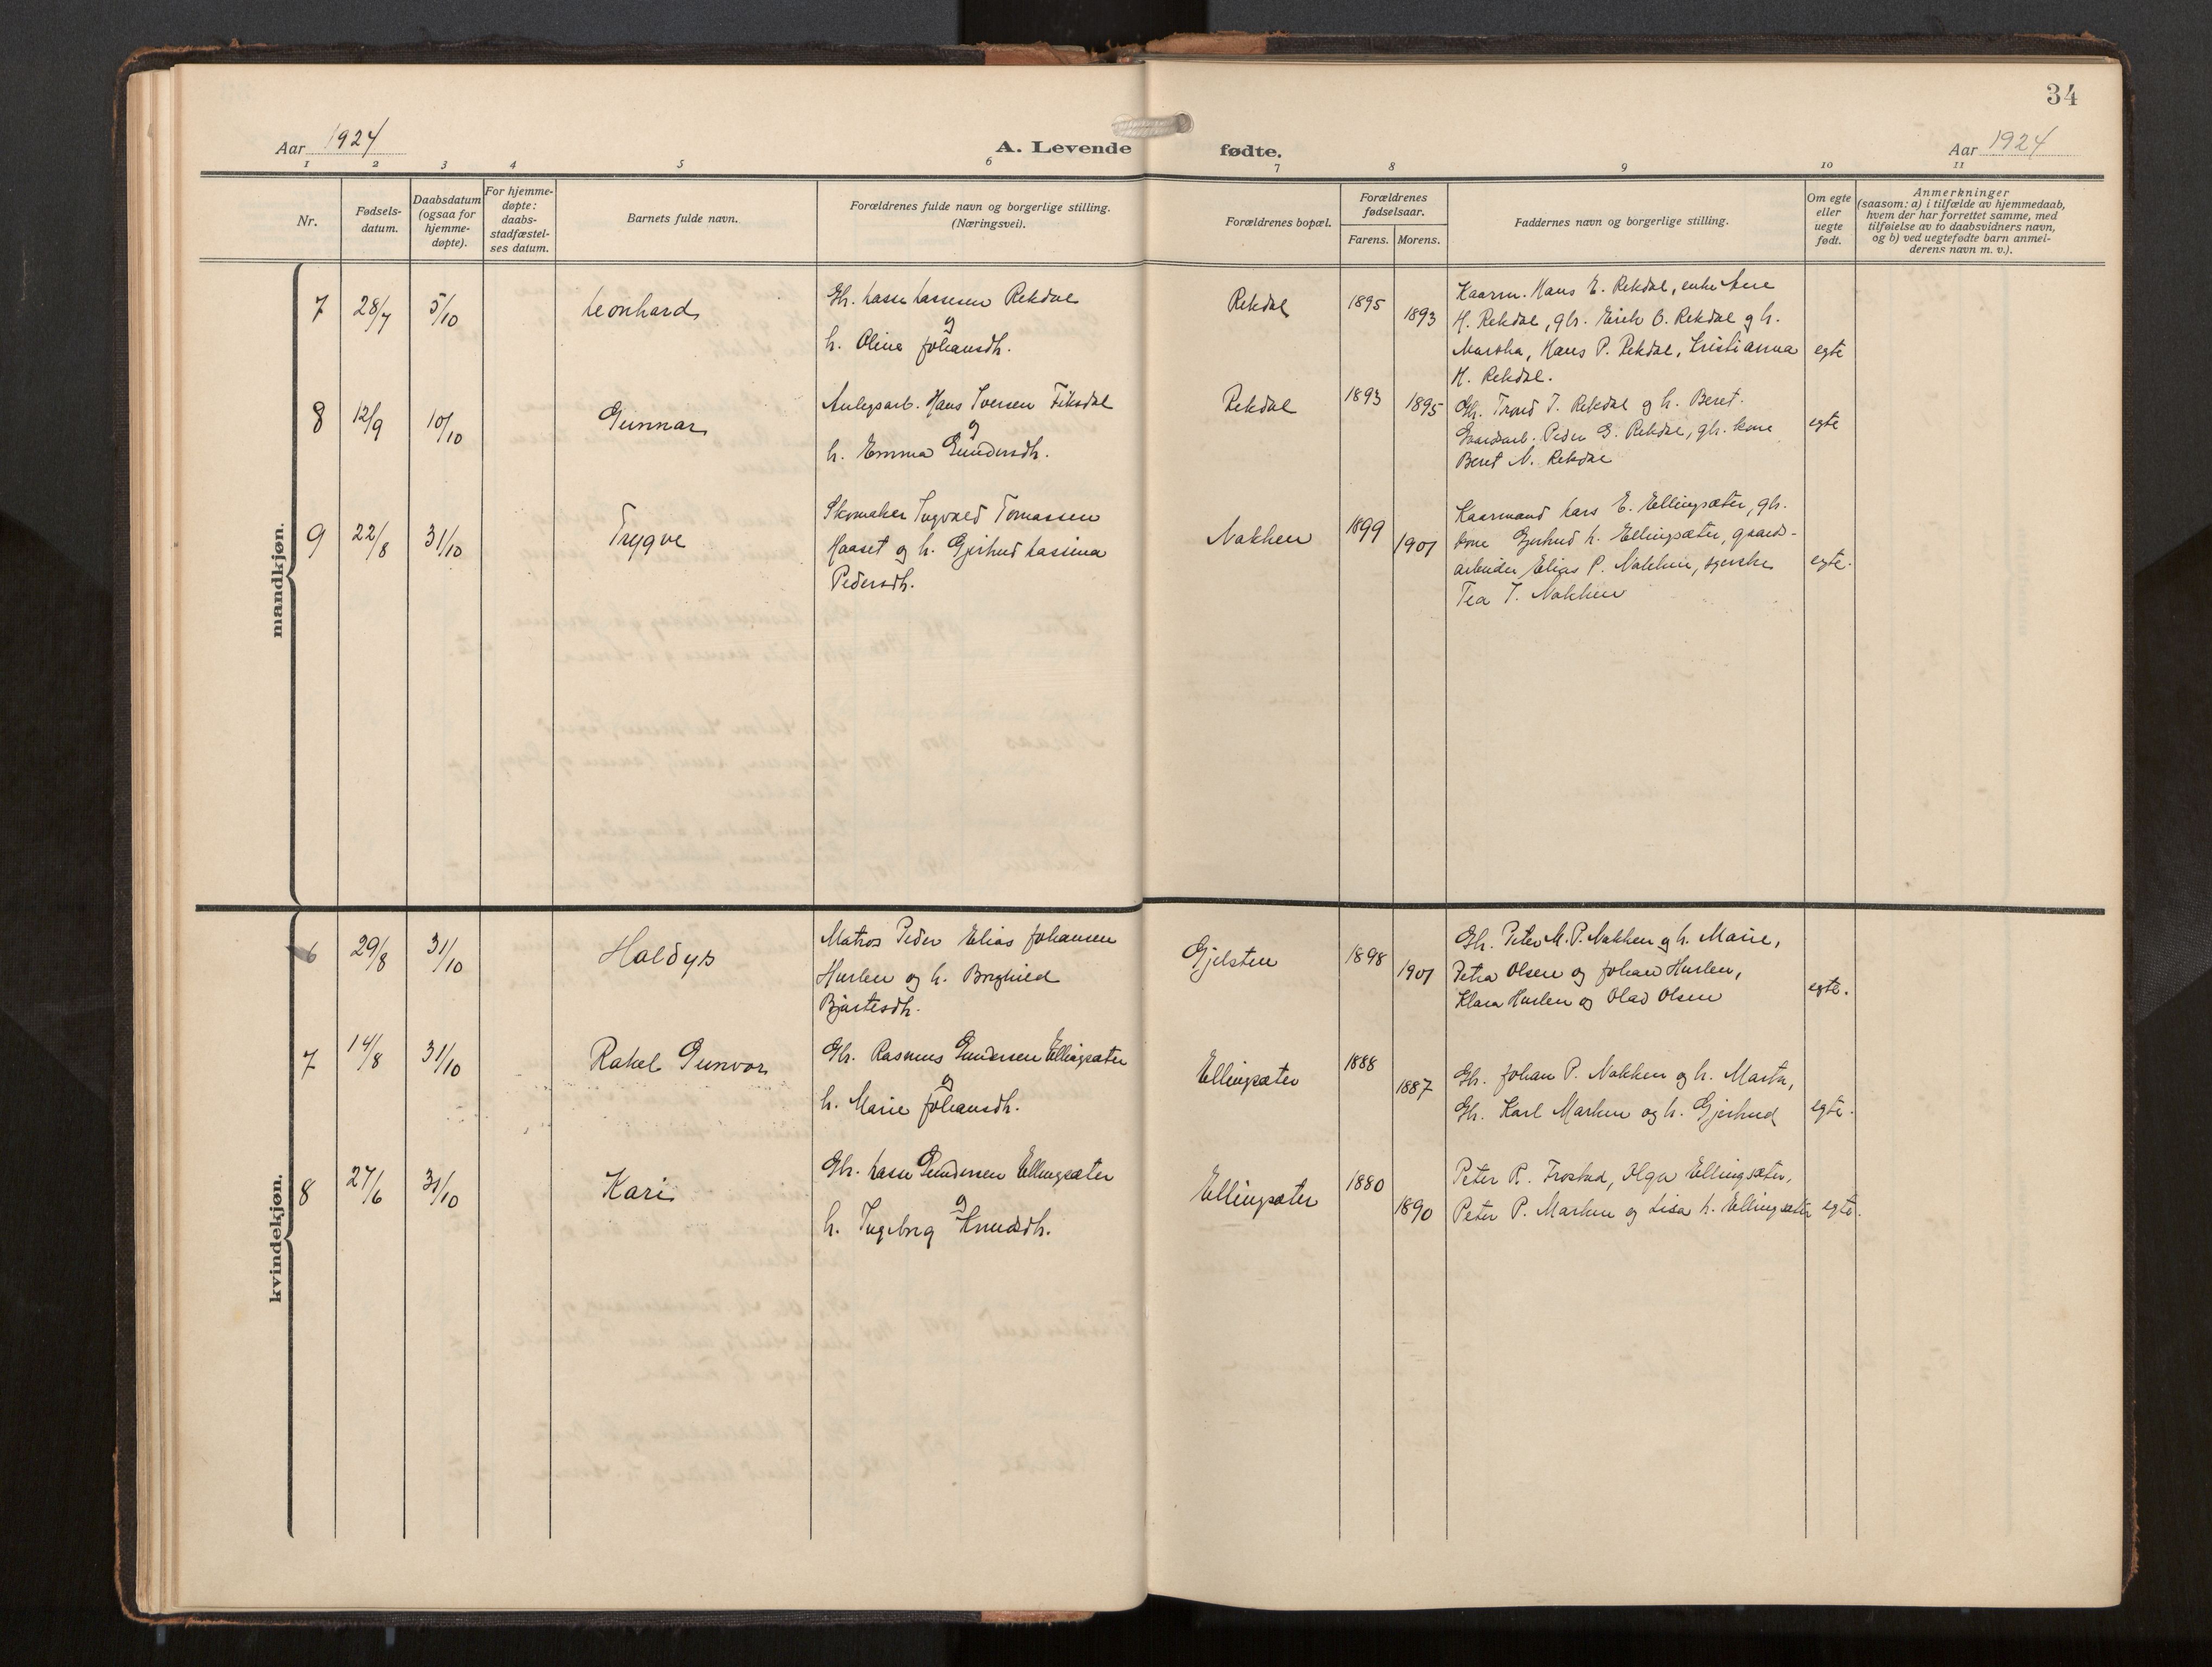 34
Aar 1924
A. Levende fødte.
Aar 1924
1 2 3 4 5 6 7 8 9 10 11
Nr.
Fødsels-
datum.
Daabsdatum
(ogsaa for
hjemme-
døpte).
For hjemme-
døpte:
daabs-
stadfæstel-
ses datum.
Barnets fulde navn.
Forældrenes fulde navn og borgerlige stilling.
(Næringsvei).
Forældrenes bopæl.
Forældrenes
fødselsaar.
Farens. Morens.
Faddernes navn og borgerlige stilling.
Om egte
eller
uegte
født.
Anmerkninger
(saasom: a) i tilfælde av hjemmedaab,
hvem der har forrettet samme, med
tilføielse av to daabsvidners navn,
og b) ved uegtefødte barn anmel-
derens navn m. v.).
mandkjøn.
7 28/7 5/10 Leonhard
Gbr. Lasse Lassesen Rekdal
og
h. Oline Johansdh.
Rekdal 1895 1893
Kaarm. Hans E. Rekdal, enke Ane
H. Rekdal, gbr. Erik O. Rekdal og h.
Martha, Hans P. Rekdal, Kristianna
H. Rekdal.
egte
8 12/9 10/10 Gunnar
Anlegsarb. Hans Iversen Fiksdal
og
h. Emma Gundersdh.
Rekdal 1893 1895
Gbr. Trond I. Rekdal og h. Beret.
Gaardsarb. Peder G. Rekdal, gbr. kone
Beret N. Rekdal
egte
9 22/8 31/10 Trygve
Skomaker Ingvald Tomassen
Haaset og h. Gjertrud Lassina
Pedersdh.
Nakken 1899 1901
Kaarmand Lars E. Ellingsæter, gbr.
kone Gjertrud L. Ellingsæter, gaards-
arbeider Elias P. Nakken, syerske
Tea T. Nakken
egte.
kvindekjøn.
6 29/8 31/10 Haldys
Matros Peder Elias Johansen
Hurlen og h. Borghild
Bjartesdh.
Gjelsten 1898 1901
Gbr. Peter M. P. Nakken og h. Marie,
Petra Olsen og Johan Hurlen,
Klara Hurlen og Olav Olsen
egte.
7 14/8 31/10 Rakel Gunvor
Gbr. Rasmus Gundersen Ellingsæter
og
h. Marie Johansdh.
Ellingsæter 1888 1887
Gbr. Johan P. Nakken og h. Marta,
Gbr. Karl Marken og h. Gjertrud
egte.
8 27/6 31/10 Kari
Gbr. Lasse Gundersen Ellingsæter
og
h. Ingeborg Knudsdh.
Ellingsæter 1880 1890
Peter R. Frostad, Olga Ellingsæter,
Peter P. Marken og Lisa L. Ellingsæter
egte.